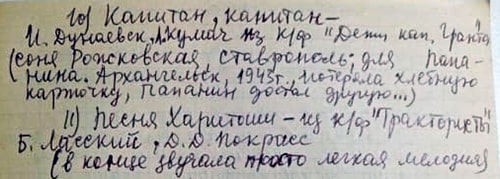 10) Капитан, капитан –
И. Дунаевск, Л.Кумач из к/ф "Дети кап. Гранта"
(соня Рожковская, Ставрополь; для Папа-
нина. Архангельск, 1943г, потеряла хлебную
карточку, Папанин достал другую...)
11) Песня Харитоши – из к/ф "Трактористы"
Б. Ласский, Д.Д. Покрасс
(в конце звучала просто легкая мелодия)